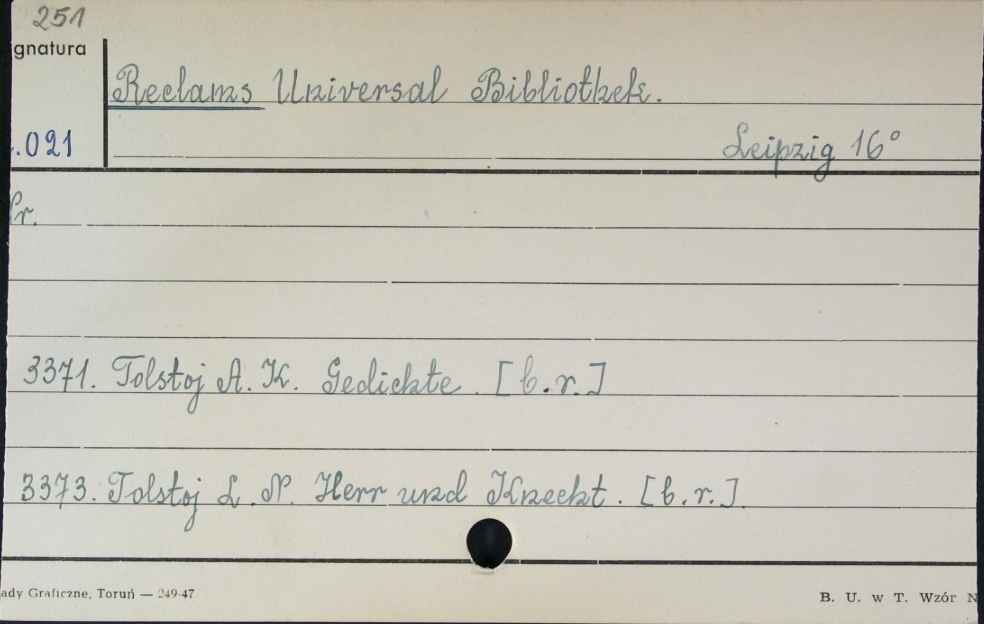 251
gnatura
Reclams Universal Bibliothek.
.021
Leipzig 16°
Nr.
3371. Tolstoj A. K. Gedichte. [b.r.]
3373. Tolstoj L. N. Herr und Knecht. [b.r.]
ady Graficzne, Toruń — 249-47
B. U. w T. Wzór N